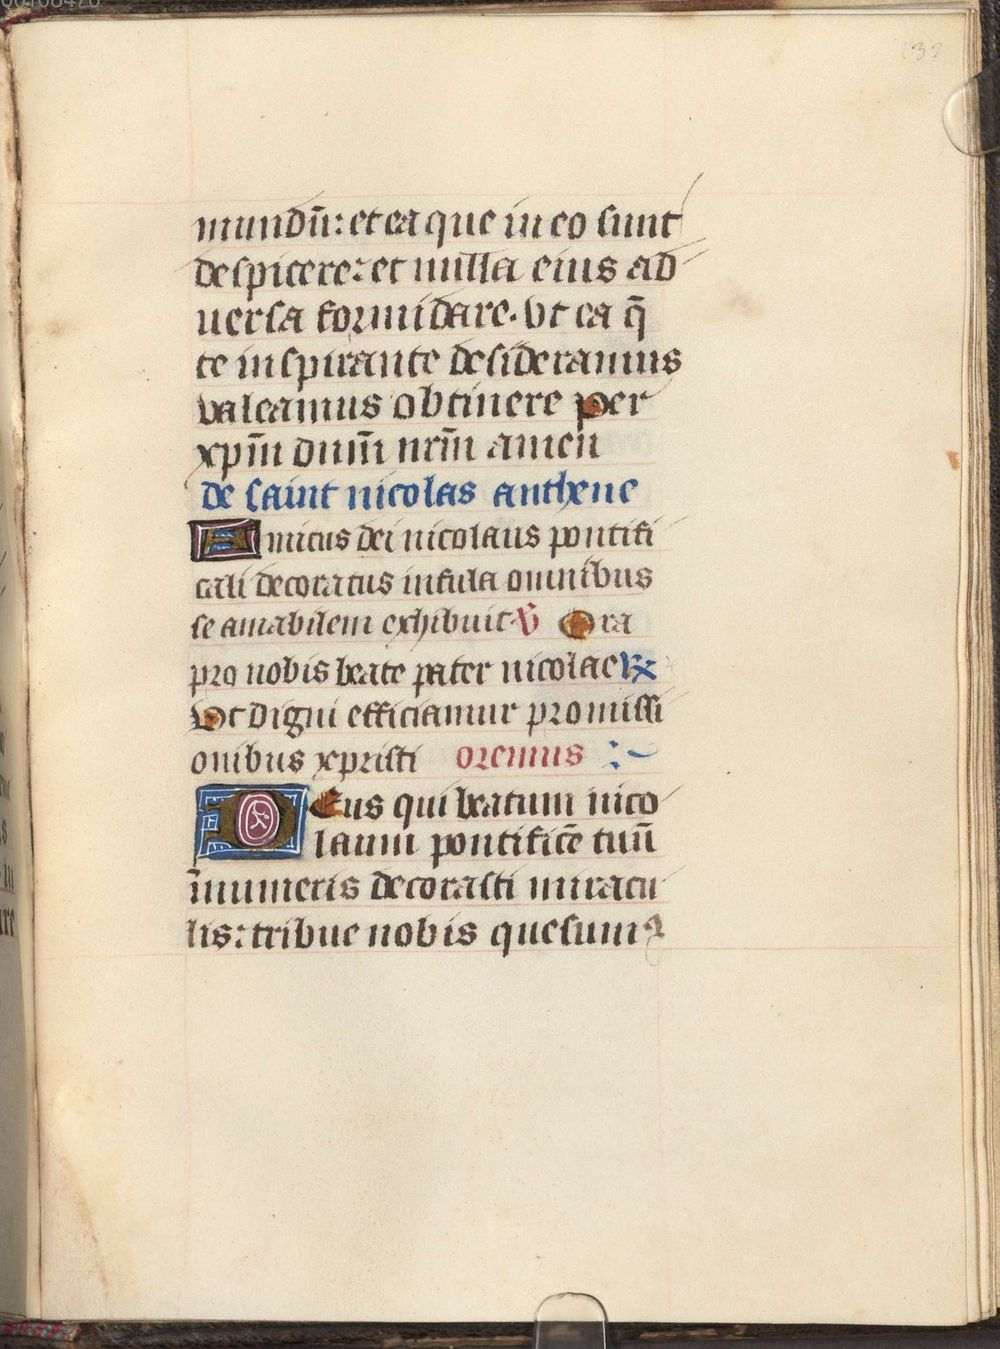 32
mundū: et ea que in eo sunt
despicere: et nulla eius ad
uersa formidare. vt ea q̄
te inspirante desideramus
valeamus obtinere per
xpm̄ dnm̄ nrm̄ amen
de saint nicolas anthene
Amicus dei nicolaus pontifi
cali decoratus infula omnibus
se amabilem exhibuit ℣ Ora
pro nobis beate pater nicolae ℟
Vt digni efficiamur promissi
onibus xpristi oremus
Deus qui beatum nico
laum pontificē tuū
īnumeris decorasti miracu
lis: tribue nobis quesum9